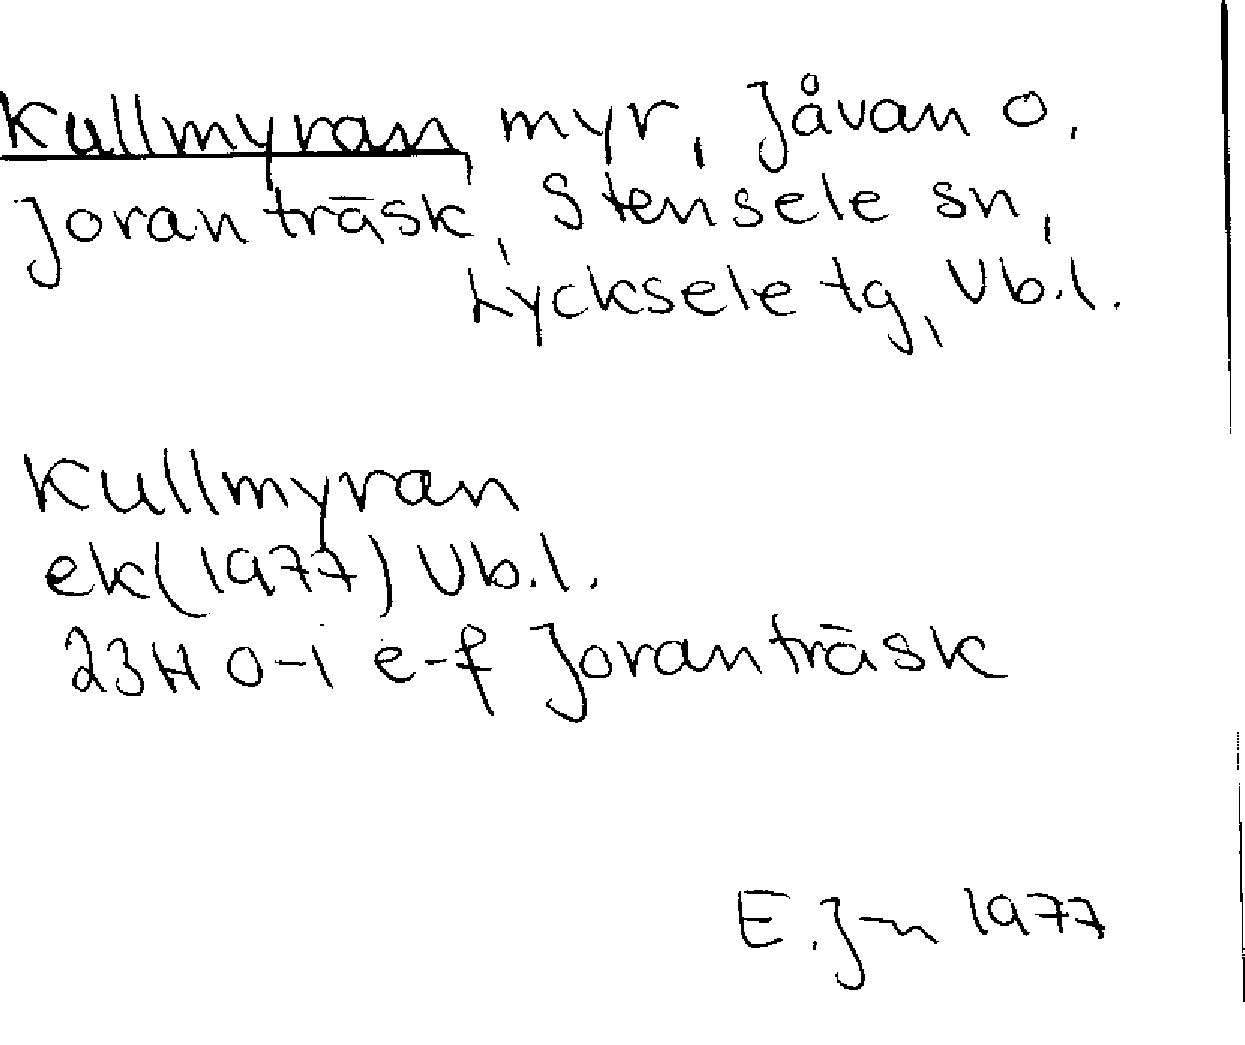 Kullmyran, myr, Jåvan o.
Joranträsk, Stensele sn,
Lycksele tg, Vb.l.
Kullmyran
ek(1977) Vb.l.
23H 0-1 e-f Joranträsk
E.J-n 1977